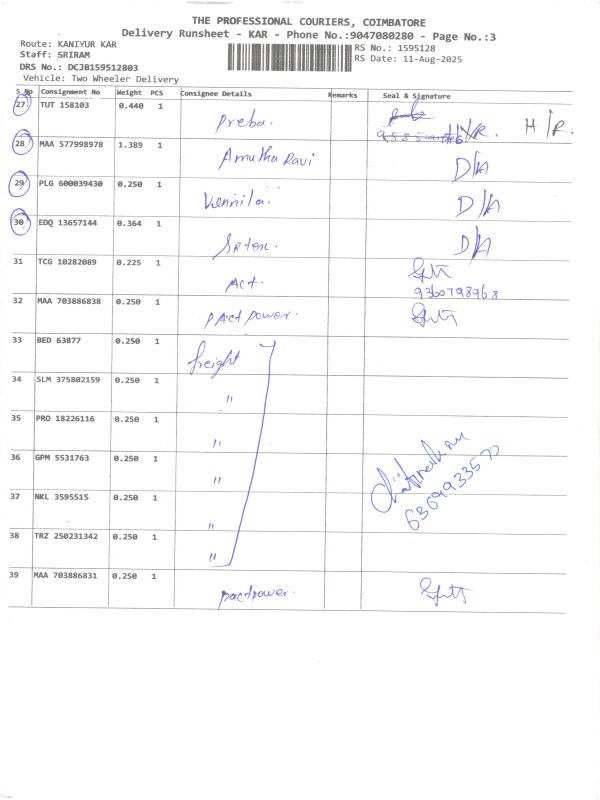 THE PROFESSIONAL COURIERS, COIMBATORE
Delivery Runsheet - KAR - Phone No.:9047080280 - Page No.:3
Route: KANIYUR KAR
RS No.: 1595128
Staff: SRIRAM
RS Date: 11-Aug-2025
DRS No.: DCJB159512803
Vehicle: Two Wheeler Delivery
S No Consignment No Weight PCS Consignee Details Remarks Seal & Signature
27 TUT 158103 0.440 1 Preba. H/R.
28 MAA 577998978 1.389 1 Amutha Ravi D/A
29 PLG 600039430 0.250 1 Vennila D/A
30 EDQ 13657144 0.364 1 D/A
31 TCG 10282089 0.225 1 Act. 9360798968
32 MAA 703886838 0.250 1 pact power.
33 BED 63877 0.250 1 freight
34 SLM 375802159 0.250 1 "
35 PRO 18226116 0.250 1 "
36 GPM 5531763 0.250 1 "
6369933570
37 NKL 3595515 0.250 1 "
38 TRZ 250231342 0.250 1 "
39 MAA 703886831 0.250 1 pactpower.